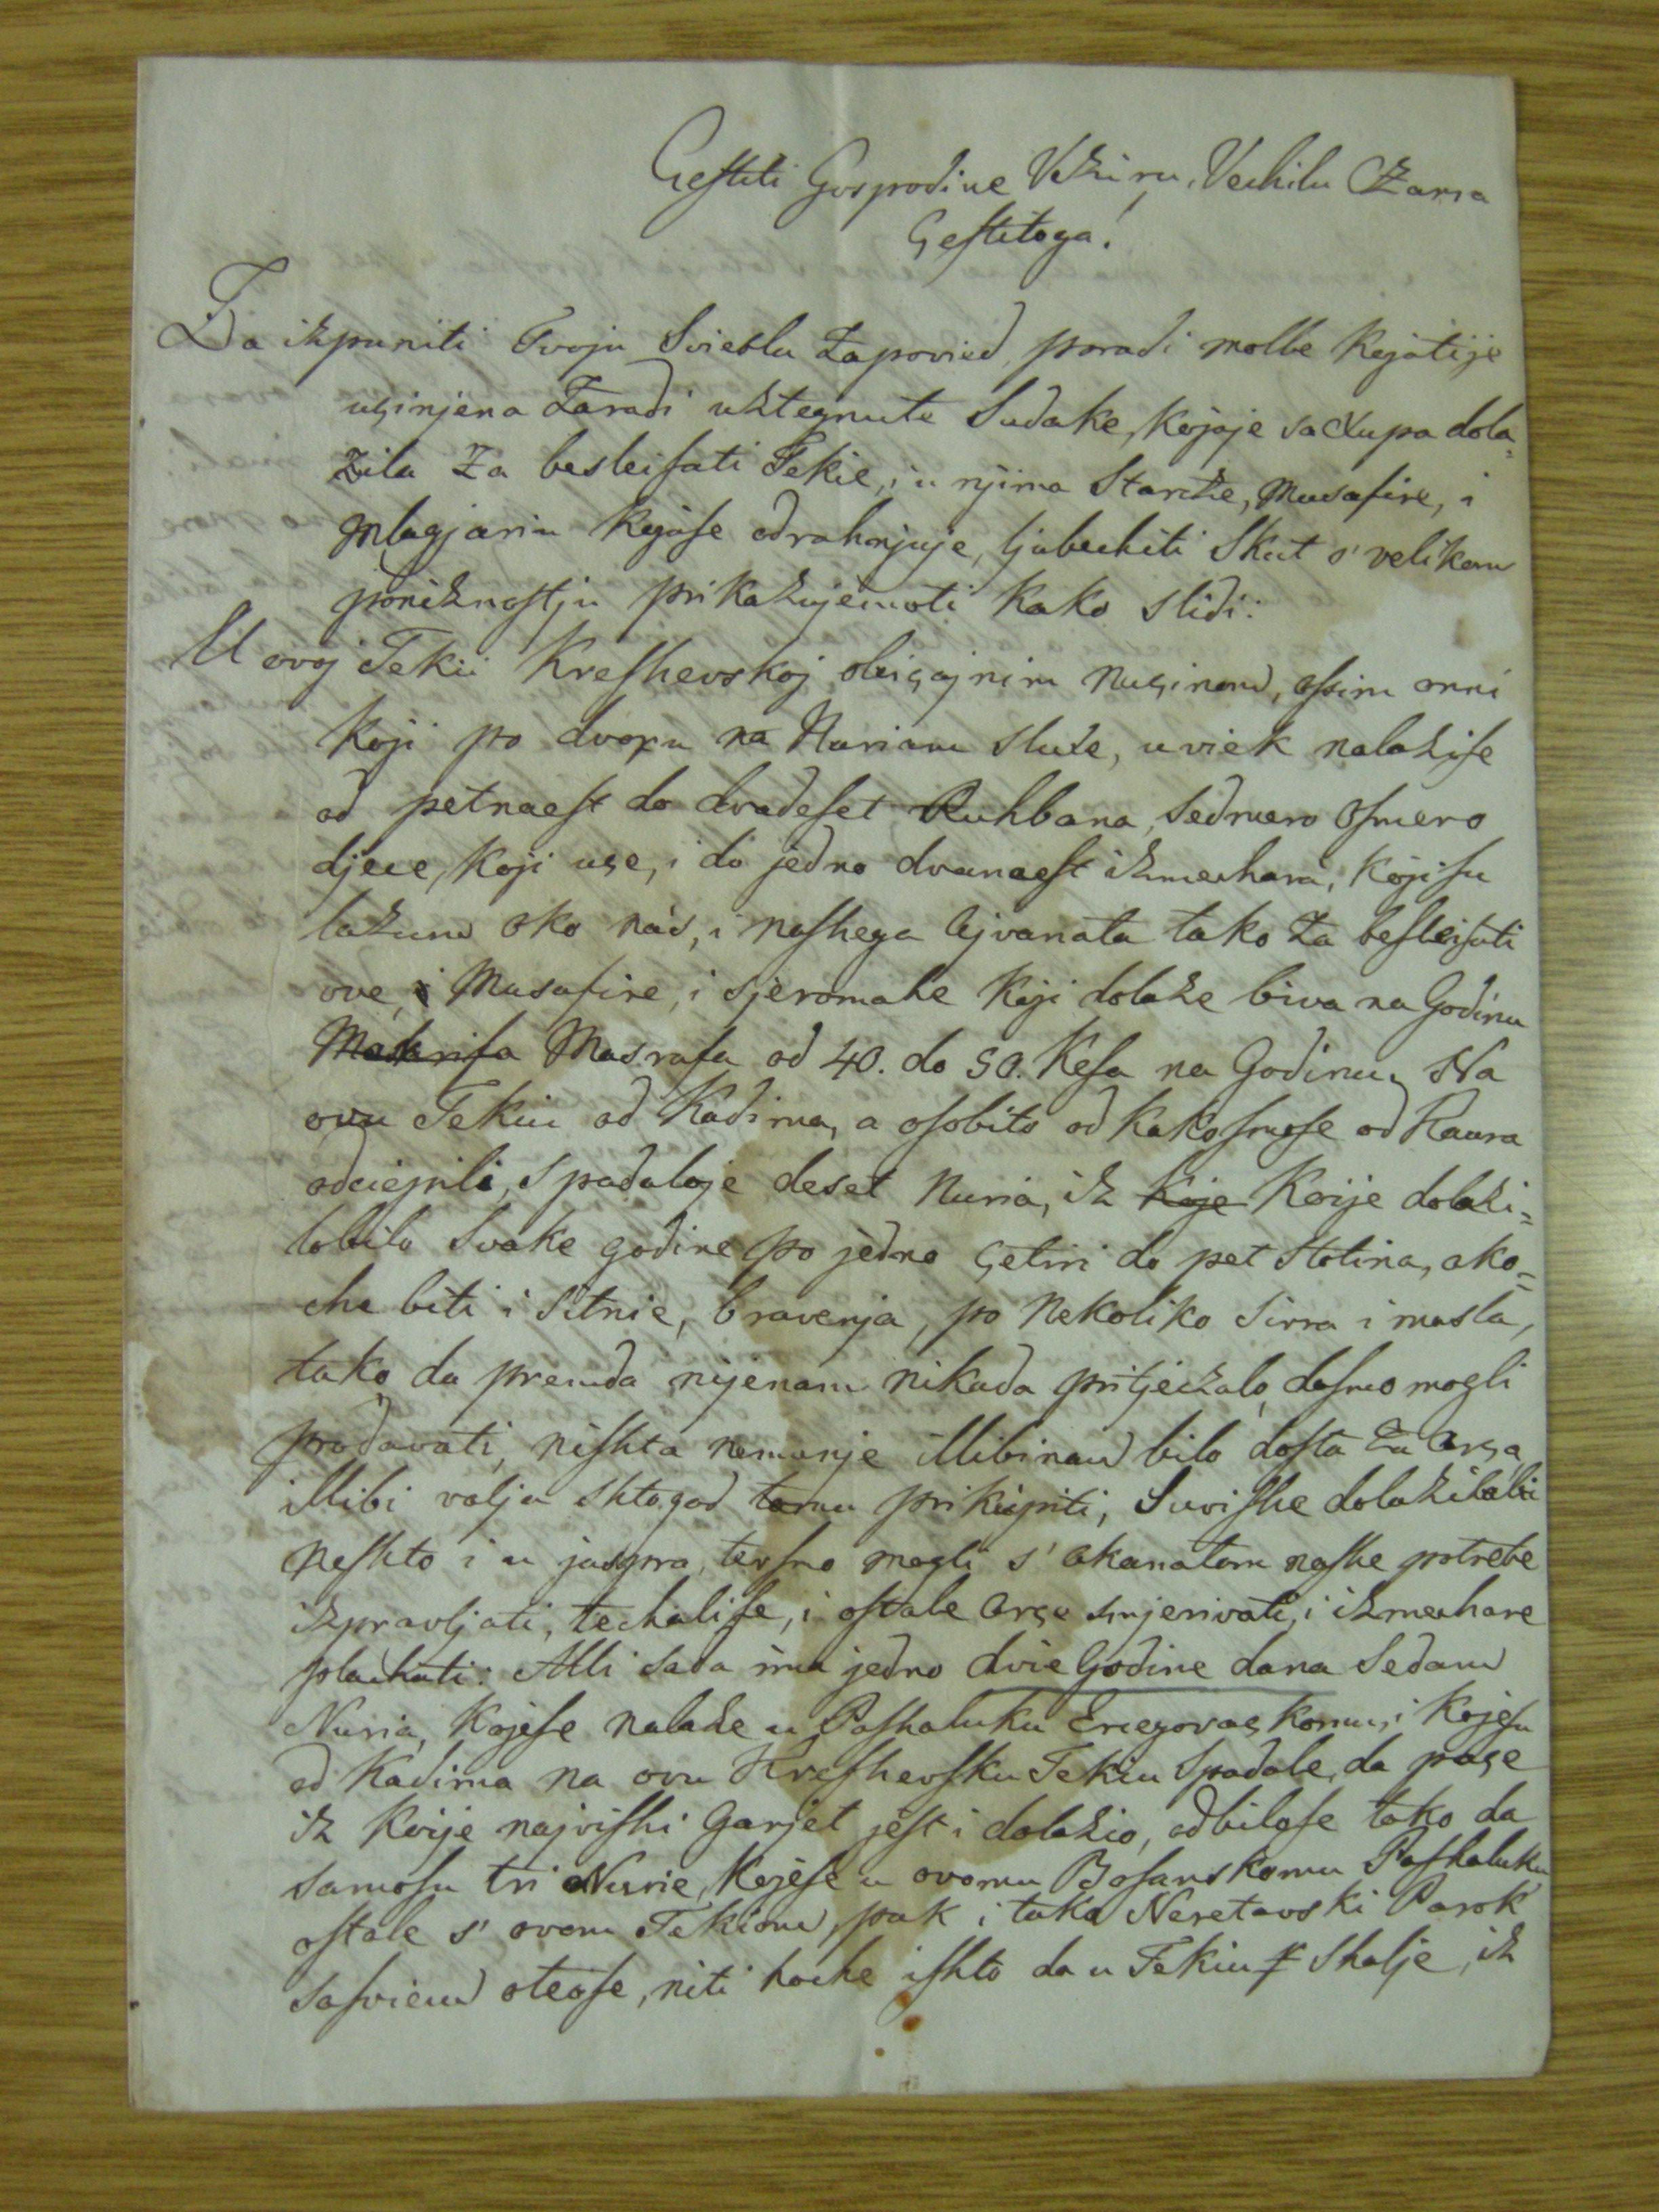 Çeſtiti Gospodine Veziru, Vechilu Czara
Çeſtitoga!
Da izpuniti Tvoju Svietlu Zapovied, poradi molbe kojàtije
uçinjena Zaradi uztegnute Sudake, kojaje sa Xupa dola=
zila za besleiſati Tekie, i u njima Starcze, Musafire, i
Mlagjariu kojàſe odrahnjuje, ljubechiti Skut s' velikom
ponìznoſtju prikazujemoti kako slidi:
U ovoj Tekii Kreſhevskoj obiçajnim naçinom, oſim onni
koji po dvoru na Nuriam sluxe, uviek nalaziſe
od petnaeſt do dvadeſet Ruhbana, sedmero oſmero
djece, koji uçe, i do jedno dvanaeſt izmechara, kojiſu
lazum oko nàs, i naſhega Ajvanata tako za beſleiſati
ove, i Musafire, i sjeromahe koji dolaze biva na Godinu
Maſarifa Masrafa od 40. do 50. Keſa na Godinu. Na
ovu Tekiu od Kadima, a oſobito od kakoſmoſe od Kaura
odciepili, spadaloje deset Nuria, iz koje Koije dolazi=
lobilo svake godine po jedno çetiri do pet Stotina, ako=
che biti i sitnie, bravenja, po Nekoliko sirra i masla,
tako da premda nijenam nikada pritjeczalo, daſmo mogli
prodavati, niſhta nemanje illibinam bilo doſta za Arça
illibi valja shtogod tomu prikupiti, Suviſhe dolazilobi
neſhto i u jaspra, terſmo mogli s' akanatom naſhe potrebe
izpravljati, techaliſe, i oſtale Arçe smjerivati, i izmechare
plachati: Alli sada ima jedno dvie Godine dana sedam
Nuria, kojeſe nalaze u Paſhaluku Ercegovaçkomu, i kojeſu
od Kadima na ovu Kreſhevſku Tekiu spadale, da paçe
iz koije najviſhi Garjet jeſt i dolazio, odbiloſe tako da
samoſu tri Nurie, kojeſe u ovomu Boſanskomu Paſhaluku
oſtale s' ovom Tekiom, pak i tako Neretavski Parok
saſviem oteoſe, niti hoche iſhto da u Tekiu shalje, iz